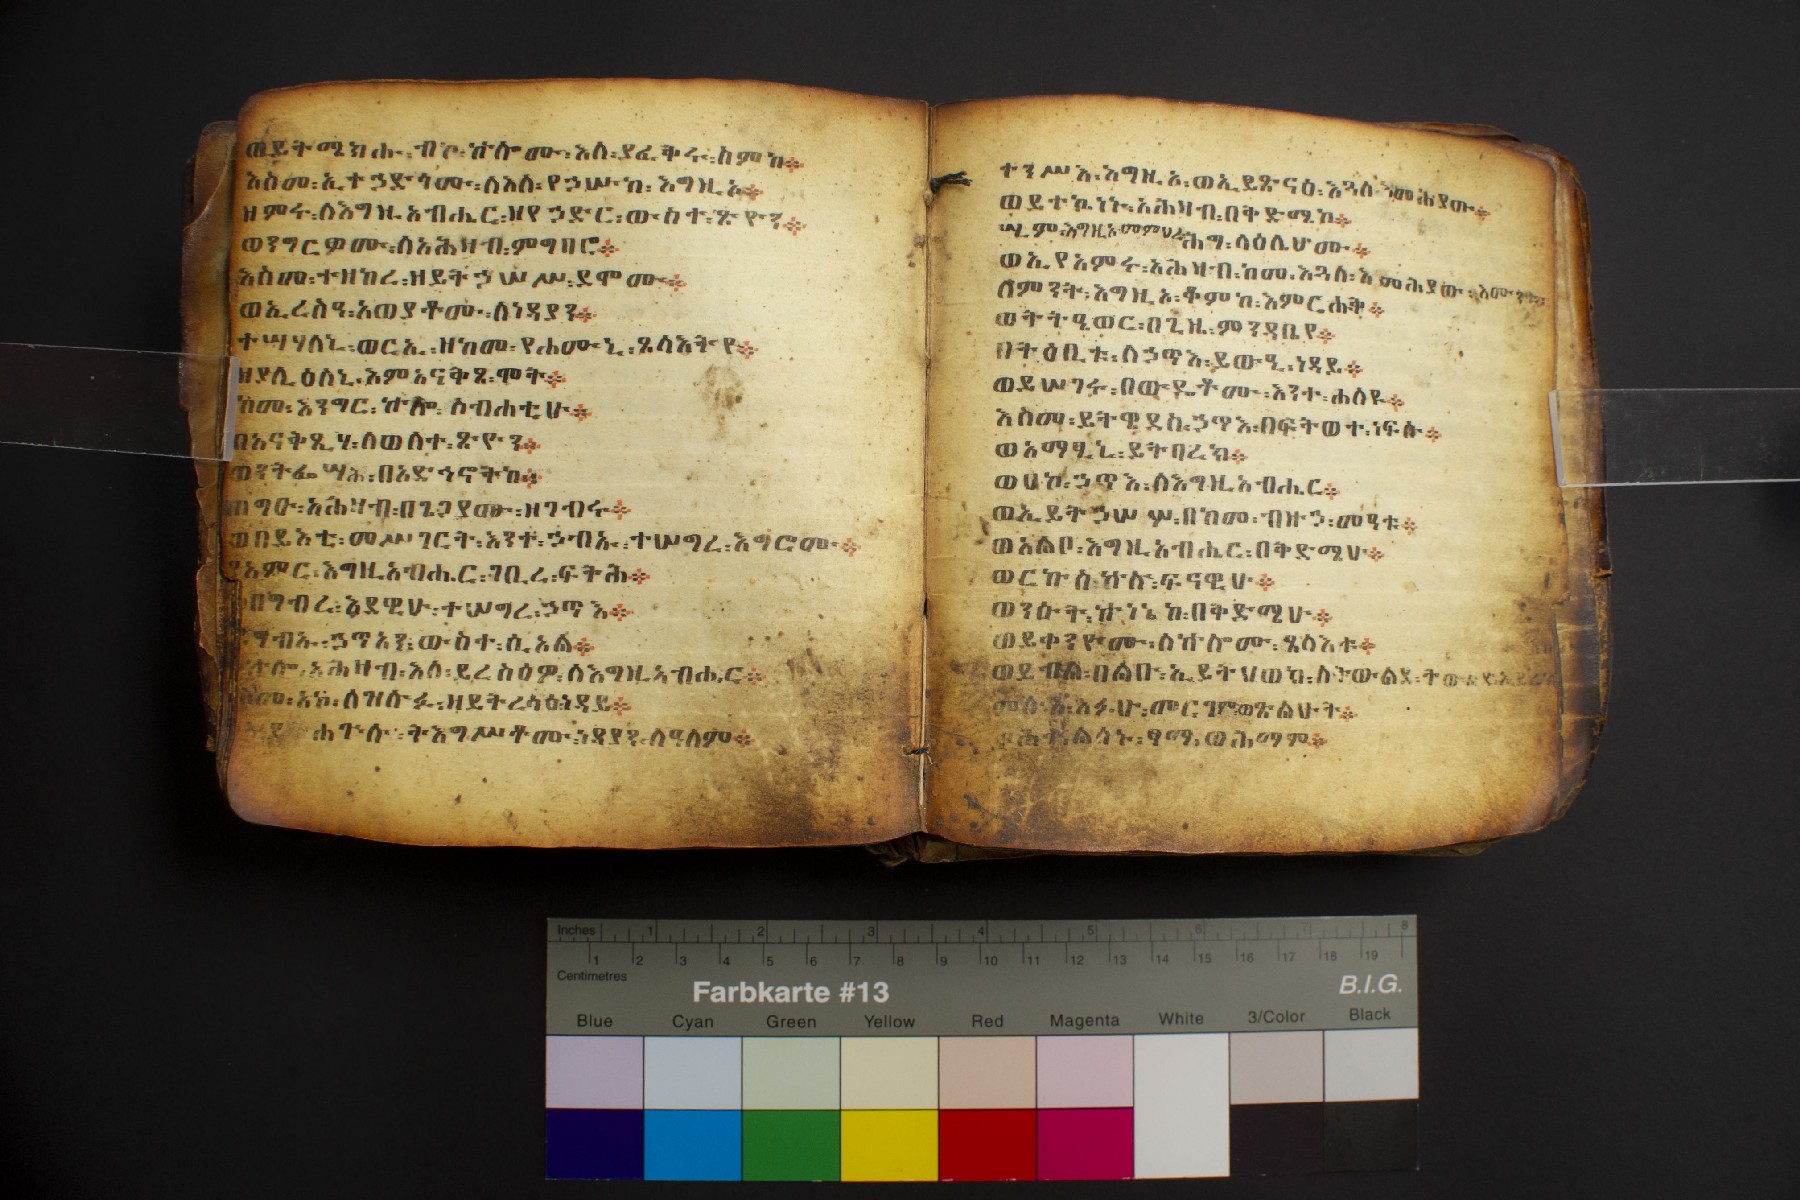 ወይትሜክሑ፡ብከ፡ኵሎሙ፡እለ፡ያፈቅሩ፡ስምከ
እስመ፡ኢተኃድጎሙ፡ለእለ፡የኃሥከ፡እግዚአ
ዘምሩ፡ለእግዚአብሔር፡ዘየኃድር፡ውስተ፡ጽዮን
ወንግርዎሙ፡ለአሕዛብ፡ምግባሮ
እስመ፡ተዘከረ፡ዘይትኃሠሥ፡ደሞሙ
ወኢረስዓ፡አወያቶሙ፡ለነዳያን
ተሣሃለኒ፡ወርኢ፡ዘከመ፡የሐሙኒ፡ጸላእትየ
ዘያሌዕለኒ፡እምአናቅጸ፡ሞት
ከመ፡እንግር፡ኵሎ፡ስብሐቲሁ
በአናቅጺሃ፡ለወለተ፡ጽዮን
ወንትፌሣሕ፡በአድኅኖትከ
ጠግዑ፡አሕዛብ፡በጌጋያሙ፡ዘገብሩ
ወበይእቲ፡መሥገርት፡እንተ፡ኃብኡ፡ተሠግረ፡እግሮሙ
ያአምር፡እግዚአብሔር፡ገቢረ፡ፍትሕ
በግብረ፡እደዊሁ፡ተሠግረ፡ኃጥእ
ይግብኡ፡ኃጥአን፡ውስተ፡ሲኦል
ኵሎሙ፡አሕዛብ፡እለ፡ይረስዕዎ፡ለእግዚአብሔር
እስመ፡አኮ፡ለዝሉፉ፡ዘይትረሳዕ፡ነዳይ
ሐጕሉ፡ትእግሥቶሙ፡ነዳያን፡ለዓለም
ተንሥእ፡እግዚኦ፡ወኢይጽናዕ፡እጓለእመሕያው
ወይተኰነኑ፡አሕዛብ፡በቅድሜከ
ሢም፡እግዚኦ፡መምህረ፡ሕግ፡ላዕሌሆሙ
ወኢየአምሩ፡አሕዛብ፡ከመ፡እጓለ፡እመሕያው፡እሙንቱ
ለምንት፡እግዚኦ፡ቆምከ፡እምርሐቅ
ወትትዔወር፡በጊዜ፡ምንዳቤየ
በትዕቢቱ፡ለኃጥእ፡ይውዒ፡ነዳይ
ወይሠገሩ፡በውዴቶሙ፡እንተ፡ሐለዩ
እስመ፡ይትዌደስ፡ኃጥእ፡በፍትወተ፡ነፍሱ
ወአማፂኒ፡ይትባረክ
ወሀከ፡ኃጥእ፡ለእግዚአብሔር
ወኢይትኃሠሦ፡በከመ፡ብዙኃ፡መዓቱ
ወአልቦ፡እግዚአብሔር፡በቅድሜሁ
ወርኩስ፡ኵሉ፡ፍናዊሁ
ወንዑት፡ኵነኔከ፡በቅድሜሁ
ወይቀንዮሙ፡ለኵሎሙ፡ጸላእቱ
ወይብል፡በልቡ፡ኢይትሀወክ፡ለትውልደ፡ትውልድ
መሉእ፡አፉሁ፡መርገመ፡ወጽልሁት
ታሕተ፡ልሳኑ፡ፃማ፡ወሕማም
Inches 1 2 3 4 5 6 7 8
1 2 3 4 5 6 7 8 9 10 11 12 13 14 15 16 17 18 19
Centimetres
Farbkarte #13 B.I.G.
Blue Cyan Green Yellow Red Magenta White 3/Color Black